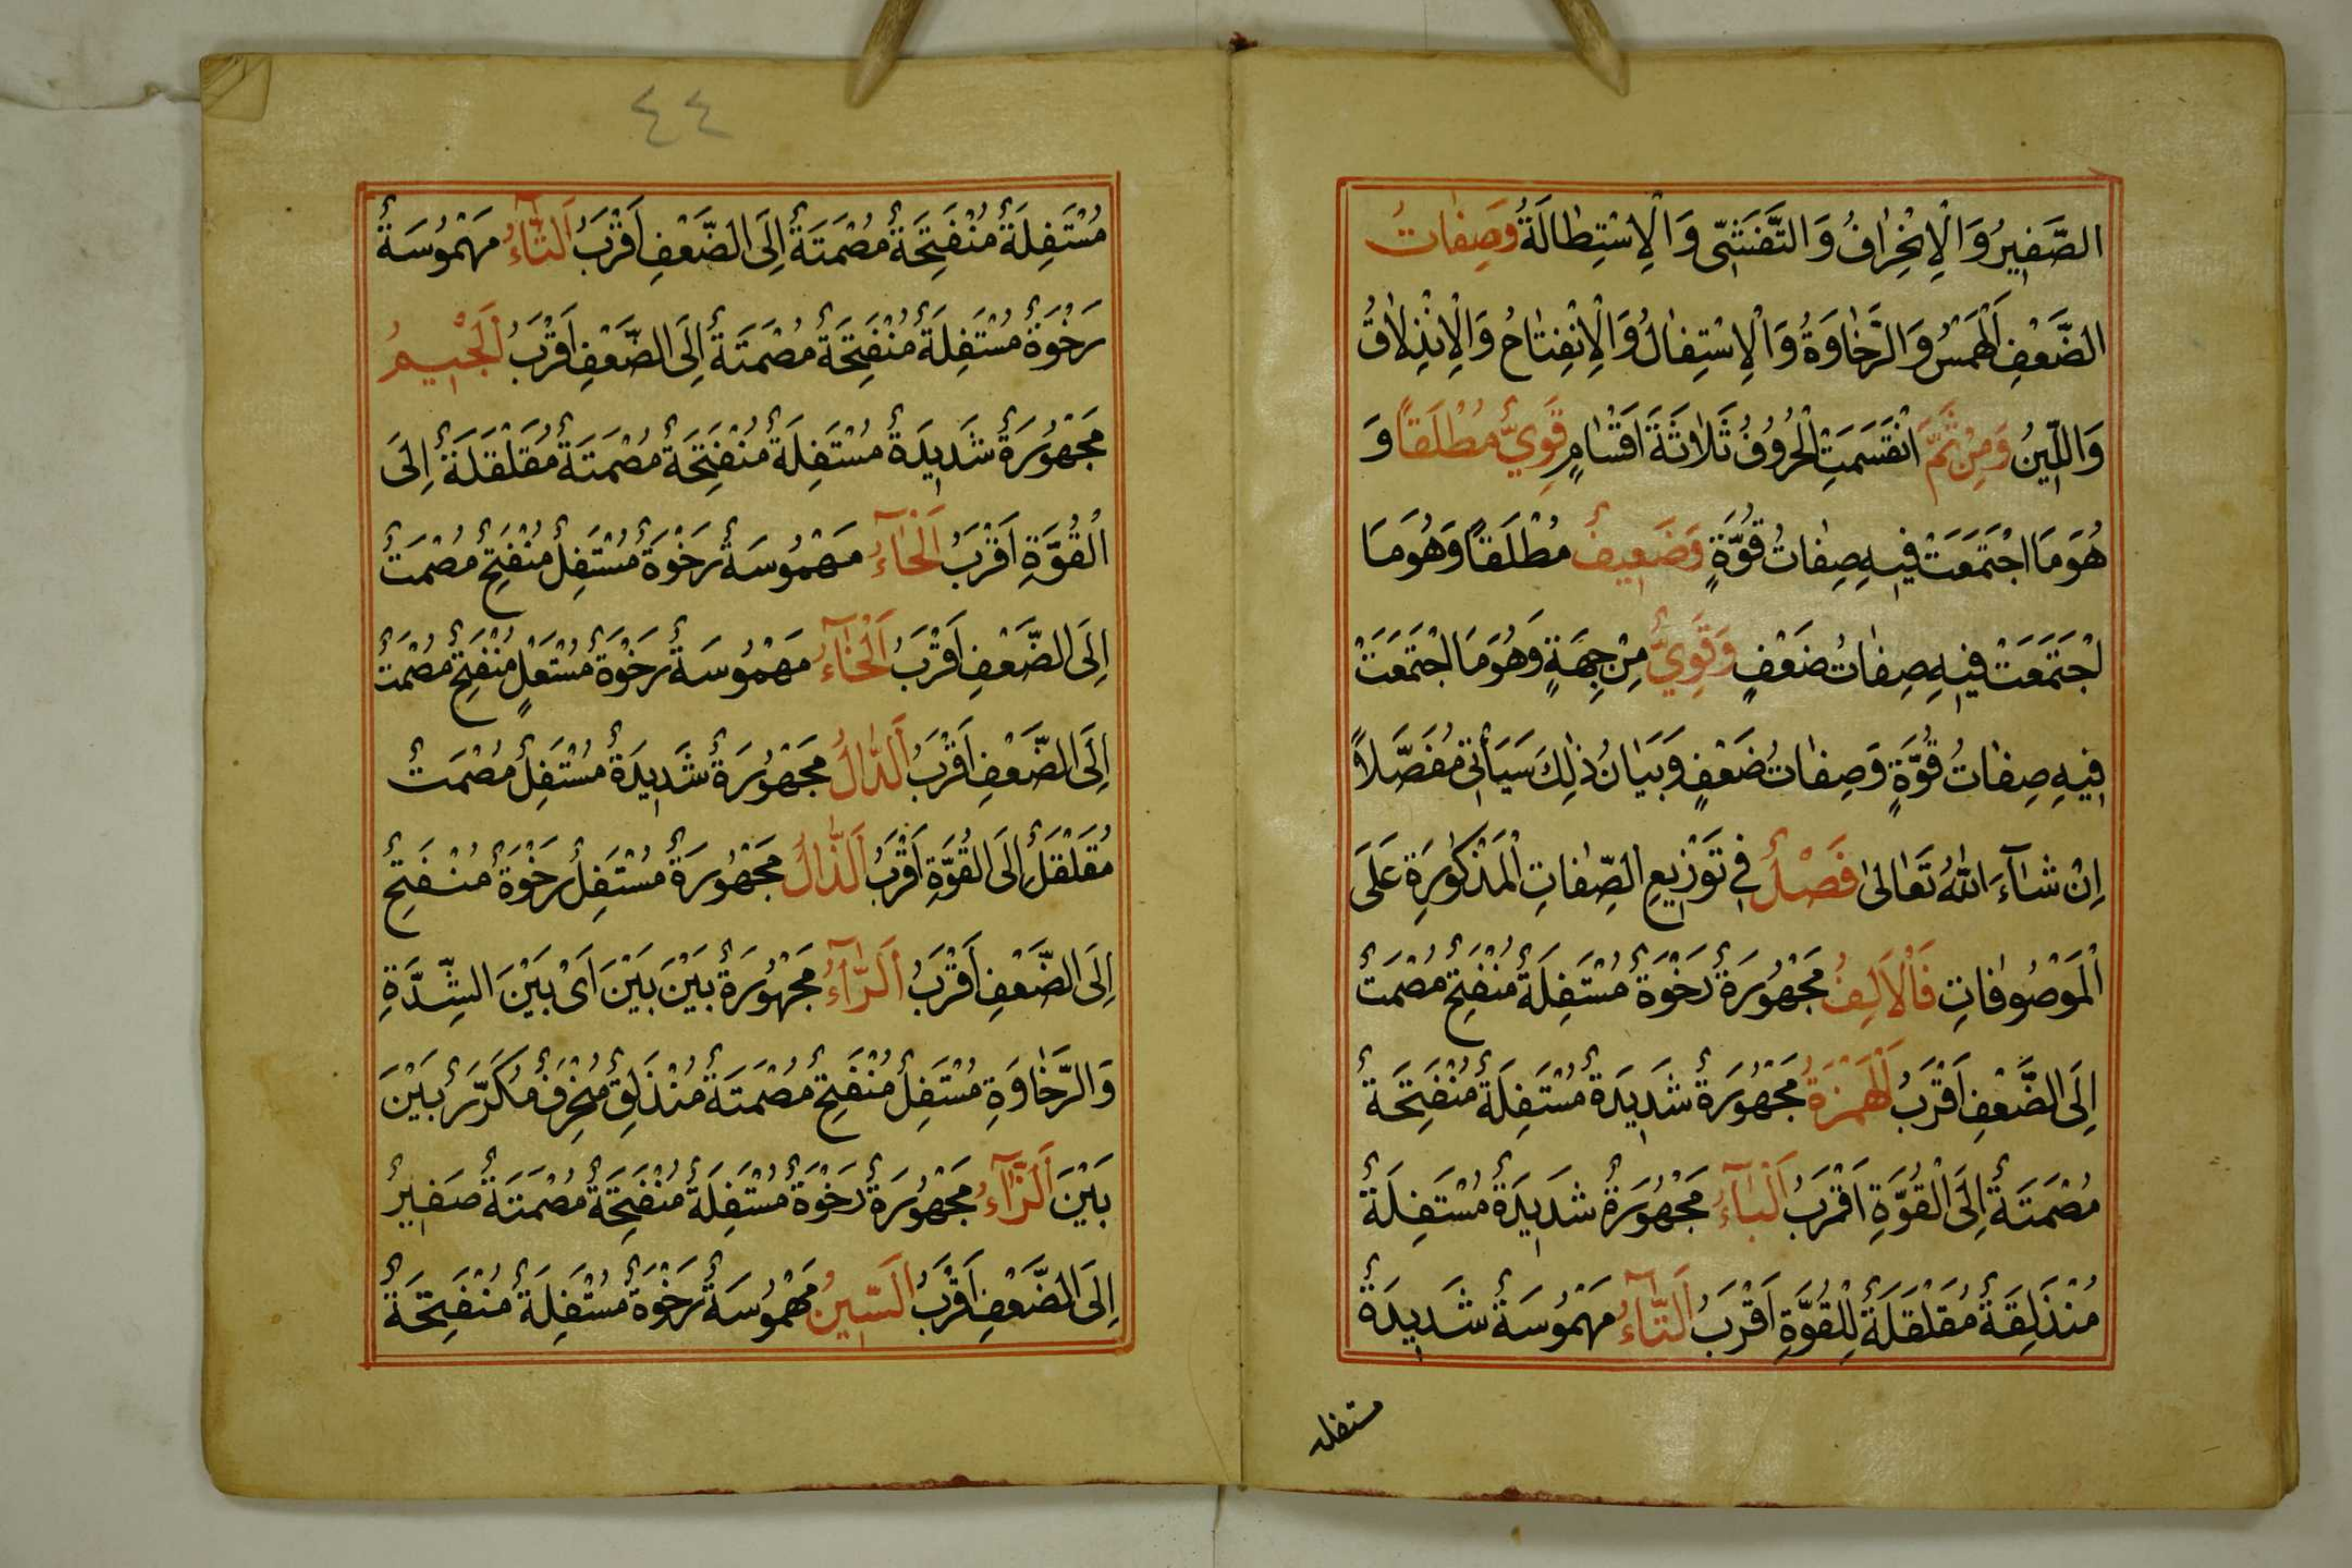 الصَّفِيرُ وَالْاِنْحِرَافُ وَالتَّفَشِّى وَالْاِسْتِطَالَةُ وَصِفَاتُ
الضَّعْفِ اَلْهَمْسُ وَالرَّخَاوَةُ وَالْاِسْتِفَالُ وَالْاِنْفِتَاحُ وَالْاِنْذِلَاقُ
وَاللِّينُ وَمِنْ ثَمَّ انْقَسَمَتِ الْحُرُوفُ ثَلَاثَةَ اَقْسَامٍ قَوِيٌّ مُطْلَقاً وَ
هُوَ مَا اجْتَمَعَتْ فِيهِ صِفَاتُ قُوَّةٍ وَضَعِيفٌ مُطْلَقاً وَهُوَ مَا
اجْتَمَعَتْ فِيهِ صِفَاتُ ضَعْفٍ وَقَوِيٌّ مِنْ جِهَةٍ وَهُوَ مَا اجْتَمَعَتْ
فِيهِ صِفَاتُ قُوَّةٍ وَصِفَاتُ ضَعْفٍ وَبَيَانُ ذٰلِكَ سَيَأْتِى مُفَصَّلاً
اِنْ شَآءَ اللهُ تَعَالىٰ فَصْلٌ فِي تَوْزِيعِ الصِّفَاتِ الْمَذْكُورَةِ عَلَى
الْمَوْصُوفَاتِ فَالْاَلِفُ مَجْهُورَةٌ رَخْوَةٌ مُسْتَفِلَةٌ مُنْفَتِحٌ مُصْمَتٌ
اِلَى الضَّعْفِ اَقْرَبُ اَلْهَمْزَةُ مَجْهُورَةٌ شَدِيدَةٌ مُسْتَفِلَةٌ مُنْفَتِحَةٌ
مُصْمَتَةٌ اِلَى الْقُوَّةِ اَقْرَبُ اَلْبَآءُ مَجْهُورَةٌ شَدِيدَةٌ مُسْتَفِلَةٌ
مُنْذَلِقَةٌ مُقَلْقَلَةٌ لِلْقُوَّةِ اَقْرَبُ اَلتَّآءُ مَهْمُوسَةٌ شَدِيدَةٌ
مستفله
٤٤
مُسْتَفِلَةٌ مُنْفَتِحَةٌ مُصْمَتَةٌ اِلَى الضَّعْفِ اَقْرَبُ اَلثَّآءُ مَهْمُوسَةٌ
رَخْوَةٌ مُسْتَفِلَةٌ مُنْفَتِحَةٌ مُصْمَتَةٌ اِلَى الضَّعْفِ اَقْرَبُ اَلْجِيمُ
مَجْهُورَةٌ شَدِيدَةٌ مُسْتَفِلَةٌ مُنْفَتِحَةٌ مُصْمَتَةٌ مُقَلْقَلَةٌ اِلَى
الْقُوَّةِ اَقْرَبُ اَلْحَآءُ مَهْمُوسَةٌ رَخْوَةٌ مُسْتَفِلٌ مُنْفَتِحٌ مُصْمَتٌ
اِلَى الضَّعْفِ اَقْرَبُ اَلْخَآءُ مَهْمُوسَةٌ رَخْوَةٌ مُسْتَعْلٍ مُنْفَتِحٌ مُصْمَتٌ
اِلَى الضَّعْفِ اَقْرَبُ اَلدَّالُ مَجْهُورَةٌ شَدِيدَةٌ مُسْتَفِلٌ مُصْمَتٌ
مُقَلْقَلٌ اِلَى الْقُوَّةِ اَقْرَبُ اَلذَّالُ مَجْهُورَةٌ مُسْتَفِلٌ رَخْوَةٌ مُنْفَتِحٌ
اِلَى الضَّعْفِ اَقْرَبُ اَلرَّآءُ مَجْهُورَةٌ بَيْنَ بَيْنَ اَىْ بَيْنَ الشِّدَّةِ
وَالرَّخَاوَةِ مُسْتَفِلٌ مُنْفَتِحٌ مُصْمَتَةٌ مُنْذَلِقٌ مُنْحَرِفٌ مُكَرَّرٌ بَيْنَ
بَيْنَ اَلزَّآءُ مَجْهُورَةٌ رَخْوَةٌ مُسْتَفِلَةٌ مُنْفَتِحَةٌ مُصْمَتَةٌ صَفِيرٌ
اِلَى الضَّعْفِ اَقْرَبُ اَلسِّينُ مَهْمُوسَةٌ رَخْوَةٌ مُسْتَفِلَةٌ مُنْفَتِحَةٌ